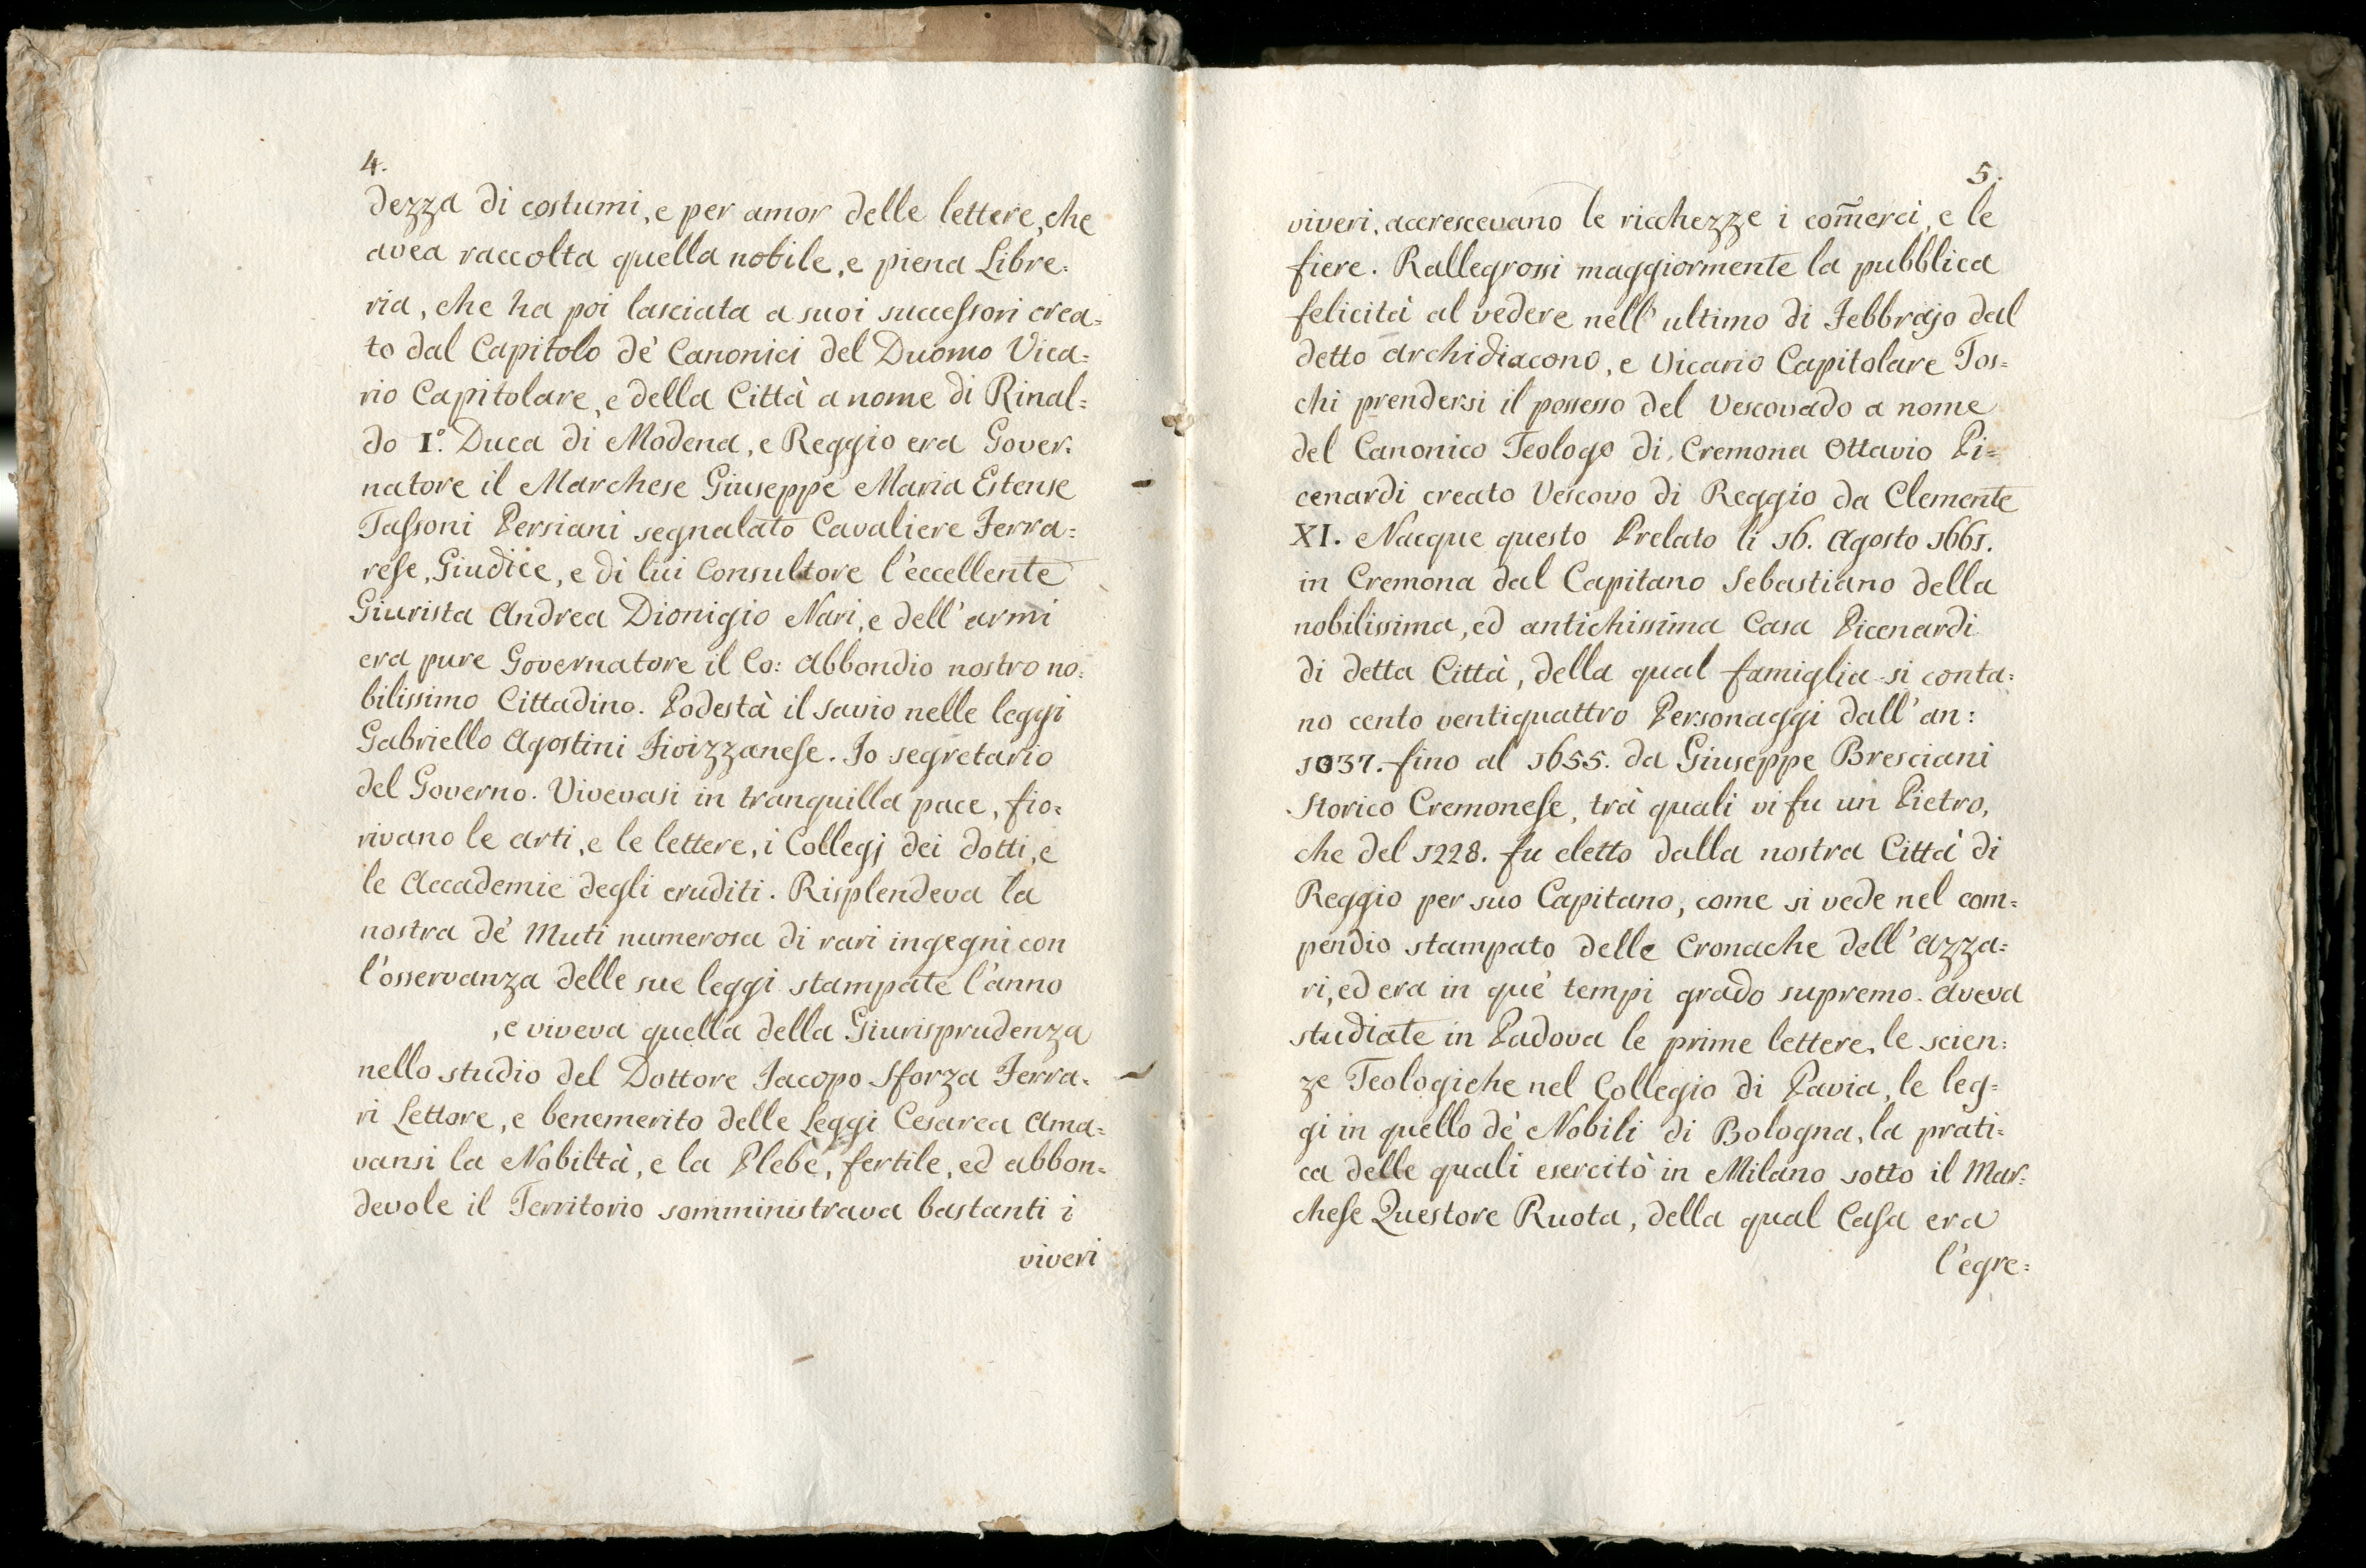 4.
dezza di costumi, e per amor delle lettere, che
avea raccolta quella nobile, e piena Libre=
ria, che ha poi lasciata a suoi successori crea=
to dal Capitolo de' Canonici del Duomo Vica=
rio Capitolare, e della Città a nome di Rinal=
do I.° Duca di Modena, e Reggio era Gover=
natore il Marchese Giuseppe Maria Estense
Tassoni Persiani segnalato Cavaliere Ferra=
rese, Giudice, e di lui Consultore l'eccellente
Giurista Andrea Dionigio Nari, e dell'armi
era pure Governatore il Co: Abbondio nostro no=
bilissimo Cittadino. Podestà il savio nelle leggi
Gabriello Agostini Fivizzanese. Io segretario
del Governo. Vivevasi in tranquilla pace, fio=
rivano le arti, e le lettere, i Collegj dei dotti, e
le Accademie degli eruditi. Risplendeva la
nostra de' Muti numerosa di rari ingegni con
l'osservanza delle sue leggi stampate l'anno
, e viveva quella della Giurisprudenza
nello studio del Dottore Jacopo Sforza Ferra=
ri Lettore, e benemerito delle Leggi Cesaree Ama=
vansi la Nobiltà, e la Plebe, fertile, ed abbon=
devole il Territorio somministrava bastanti i
viveri
5.
viveri, accrescevano le ricchezze i com̃erci, e le
fiere. Rallegrossi maggiormente la pubblica
felicità al vedere nell'ultimo di Febbrajo dal
detto Archidiacono, e Vicario Capitolare Tos=
chi prendersi il possesso del Vescovado a nome
del Canonico Teologo di Cremona Ottavio Pi=
cenardi creato Vescovo di Reggio da Clemente
XI. Nacque questo Prelato li 16. Agosto 1661.
in Cremona dal Capitano Sebastiano della
nobilissima, ed antichissima Casa Picenardi
di detta Città, della qual famiglia si conta=
no cento ventiquattro Personaggi dall'an:
1037. fino al 1655. da Giuseppe Bresciani
Storico Cremonese, trà quali vi fu un Pietro,
che del 1228. fu eletto dalla nostra Città di
Reggio per suo Capitano, come si vede nel com=
pendio stampato delle Cronache dell'Azza=
ri, ed era in que' tempi grado supremo. Aveva
studiate in Padova le prime lettere, le scien=
ze Teologiche nel Collegio di Pavia, le leg=
gi in quello de' Nobili di Bologna, la prati=
ca delle quali esercitò in Milano sotto il Mar=
chese Questore Ruota, della qual Casa era
l'egre=